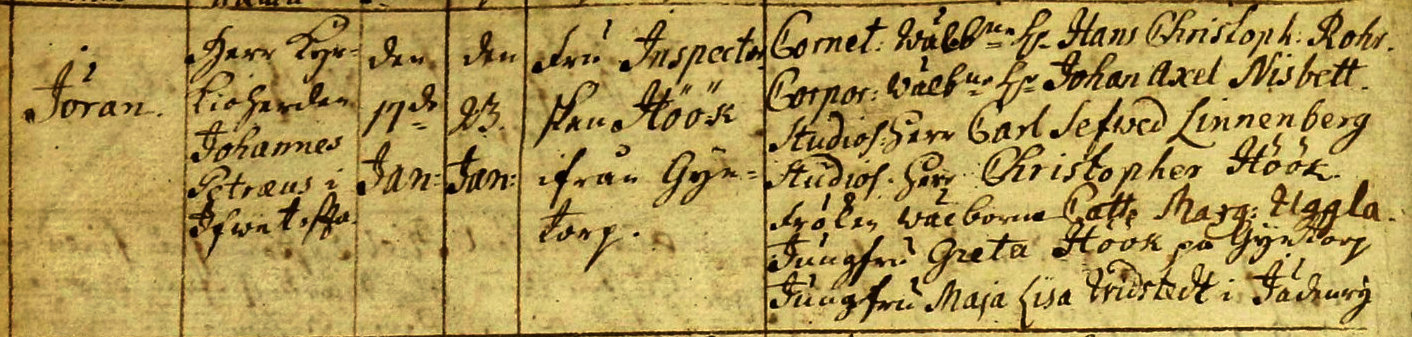 Jöran.
Herr Kyr-
kioherden
Johannes
Petræus i
den
17de
Jan:
den
23.
Jan:
Fru Inspector
skan Höök
ifrån Gyn-
torp.
Cornet: Wälb:ne Hr Hans Christoph: Rohr.
Corpor: Wälb:ne Hr Johan Axel Nisbett.
Studios: Herr Carl Sefwed Linnenberg
Studios: Herr Christopher Höök.
Fröken Wälborne Marg: Uggla.
Jungfru Greta Höök på Gyntorp
Jungfru Maja Lisa i